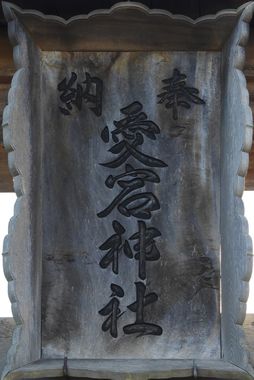 奉納
愛宕神社